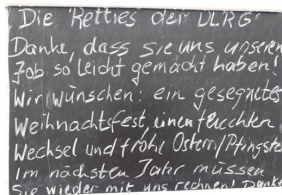 Die "Retties der DLRG"
Danke, dass Sie uns unseren
Job so leicht gemacht haben!
Wir wünschen: ein gesegnetes
Weihnachtsfest, einen feuchten
Wechsel und frohe Ostern/Pfingsten
Im nächsten Jahr müssen
Sie wieder mit uns rechnen! Danke